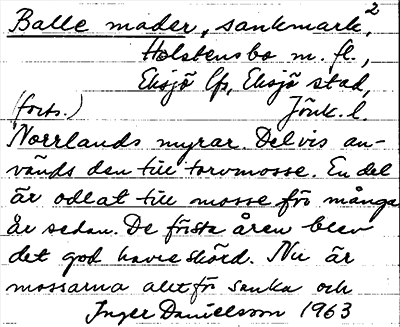 Balle mader, sankmark, 2
Holstensbo m. fl.,
Eksjö lfs, Eksjö stad,
(forts.) Jönk. l.
Norrlands myrar. Delvis an-
vänds den till torvmosse. En del
är odlat till mosse för många
år sedan. De första åren blev
det god havreskörd. Nu är
mossarna alltför sanka och
Inger Danielsson 1963